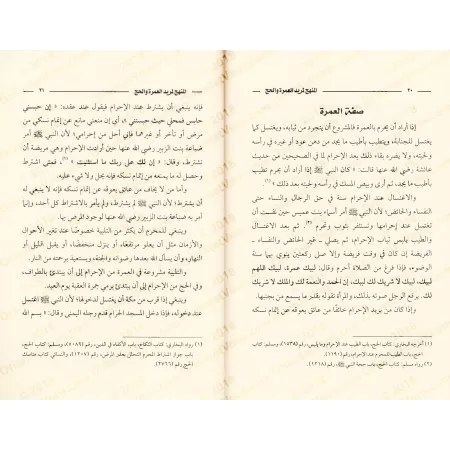 ٢٠ المنهج لمريد العمرة والحج
صفة العمرة
إذا أراد أن يحرم بالعمرة فالمشروع أن يتجرد من ثيابه، ويغتسل كما
يغتسل للجنابة، ويتطيب بأطيب ما يجد من دهن عود أو غيره في رأسه
ولحيته، ولا يضره بقاء ذلك بعد الإحرام لما في الصحيحين من حديث
عائشة رضي الله عنها قالت: «كان النبي ﷺ إذا أراد أن يحرم تطيب
بأطيب ما يجد، ثم أرى وبيص المسك في رأسه ولحيته بعد ذلك» (١).
والاغتسال عند الإحرام سنة في حق الرجال والنساء حتى
النفساء والحائض؛ لأن النبي ﷺ أمر أسماء بنت عميس حين نفست أن
تغتسل عند إحرامها وتستثفر بثوب وتحرم (٢). ثم بعد الاغتسال
والطيب يلبس ثياب الإحرام، ثم يصلي ـ غير الحائض والنفساء ـ
الفريضة إن كان في وقت فريضة وإلا صلى ركعتين ينوي بهما سنة
الوضوء، فإذا فرغ من الصلاة أحرم وقال: لبيك عمرة، لبيك اللهم
لبيك، لبيك لا شريك لك لبيك، إن الحمد والنعمة لك والملك لا شريك
لك. يرفع الرجل صوته بذلك، والمرأة تقوله بقدر ما يسمع من بجنبها.
وإذا كان من يريد الإحرام خائفًا من عائق يعوقه عن إتمام نسكه
(١) أخرجه البخاري: كتاب الحج، باب الطيب عند الإحرام وما يلبس، رقم (١٥٣٨)، ومسلم: كتاب
الحج، باب الطيب للمحرم عند الإحرام، رقم (١١٩٠).
(٢) رواه مسلم: كتاب الحج، باب حجة النبي ﷺ، رقم (١٢١٨).
المنهج لمريد العمرة والحج ٢١
فإنه ينبغي أن يشترط عند الإحرام فيقول عند عقده: «إن حبسني
حابس فمحلي حيث حبستني»، أي إن منعني مانع عن إتمام نسكي من
مرض أو تأخر أو غيرهما فإني أحل من إحرامي؛ لأن النبي ﷺ أمر
ضباعة بنت الزبير رضي الله عنها حين أرادت الإحرام وهي مريضة أن
تشترط، وقال: «إن لك على ربك ما استثنيت» (١)، فمتى اشترط
وحصل له ما يمنعه من إتمام نسكه فإنه يحل ولا شيء عليه.
وأما من لا يخاف من عائق يعوقه عن إتمام نسكه فإنه لا ينبغي له
أن يشترط؛ لأن النبي ﷺ لم يشترط، ولم يأمر بالاشتراط كل أحد، وإنما
أمر به ضباعة بنت الزبير رضي الله عنها لوجود المرض بها.
وينبغي للمحرم أن يكثر من التلبية خصوصًا عند تغير الأحوال
والأزمان مثل أن يعلو مرتفعًا، أو ينزل منخفضًا، أو يقبل الليل أو
النهار، وأن يسأل الله بعدها رضوانه والجنة، ويستعيذ برحمته من النار.
والتلبية مشروعة في العمرة من الإحرام إلى أن يبتدئ بالطواف،
وفي الحج من الإحرام إلى أن يبتدئ برمي جمرة العقبة يوم العيد.
وينبغي إذا قرب من مكة أن يغتسل لدخولها؛ لأن النبي ﷺ اغتسل
عند دخوله، فإذا دخل المسجد الحرام قدم رجله اليمنى وقال: «بسم الله
(١) رواه البخاري: كتاب النكاح، باب الأكفاء في الدين، رقم (٥٠٨٩)، ومسلم: كتاب الحج،
باب جواز اشتراط المحرم التحلل بعذر المرض، رقم (١٢٠٧)، والنسائي: كتاب مناسك
الحج، رقم (٢٧٦٦).